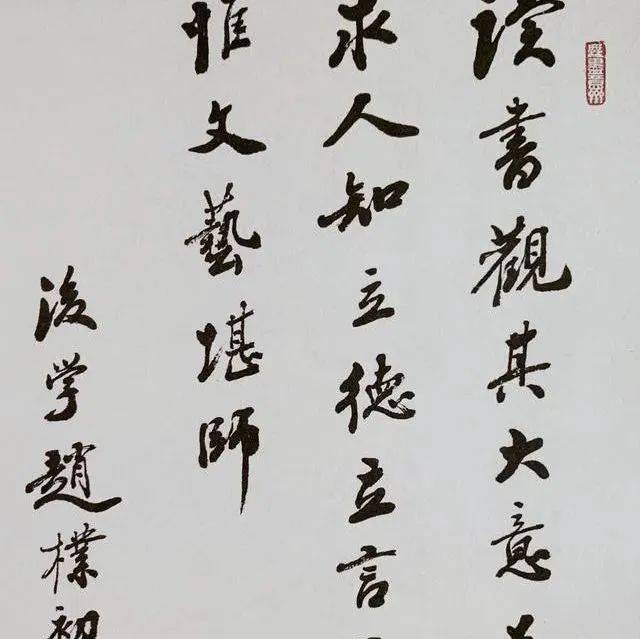 读書觀其大意
求人知立德立言
惟文藝堪師
後学趙樸初